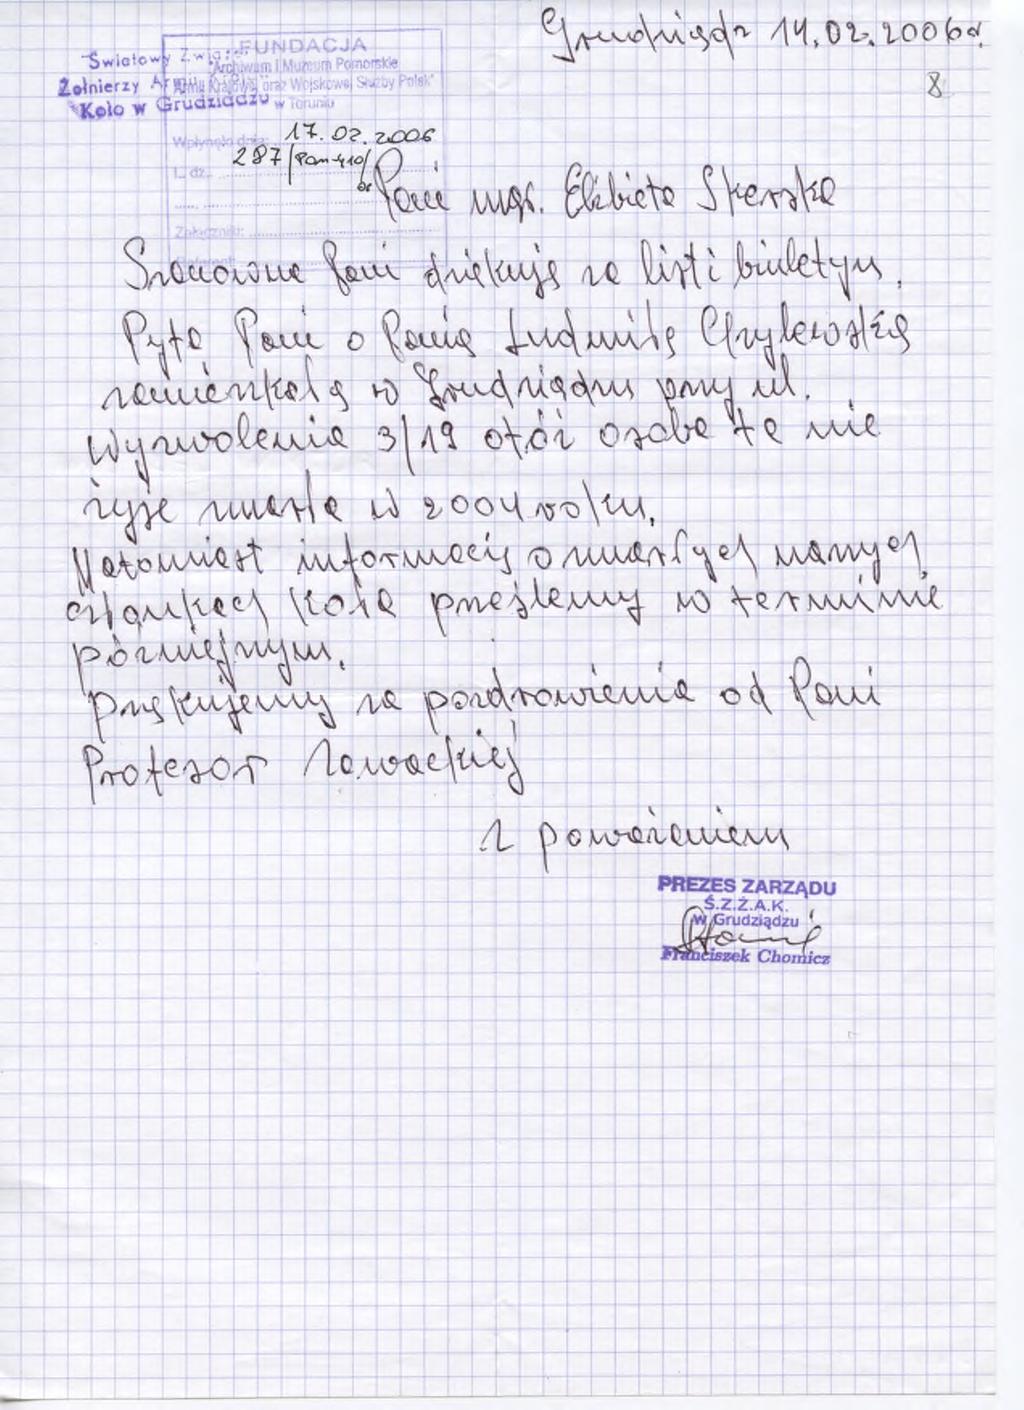 Grudziądz 14.02.2006r.
8
Światowy Związek
Żołnierzy Armii
Koło w Grudziądzu
FUNDACJA
"Archiwum i Muzeum Pomorskie
Armii Krajowej oraz Wojskowej Służby Polek"
w Toruniu
Wpłynęło dnia: 17.02.2006
L. dz. 287/Pom-410/
Załączniki:
Pani mgr. Elżbieta Skerska
Szanowna Pani dziękuję za list i biuletyn.
Pyta Pani o Panią Ludmiłę Grzybowską
zamieszkałą w Grudziądzu przy ul.
Wyzwolenia 3/19 otóż osoba ta nie
żyje zmarła w 2004 roku.
Natomiast informację o zmarłych naszych
członkach koła prześlemy w terminie
późniejszym.
Dziękujemy za pozdrowienia od Pani
Profesor Zawackiej
Z poważaniem
PREZES ZARZĄDU
Ś.Z.Ż.A.K.
w Grudziądzu
Franciszek Chomicz